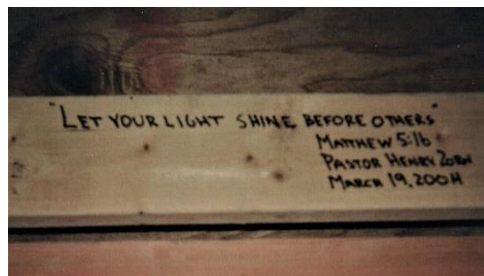 "LET YOUR LIGHT SHINE BEFORE OTHERS"
MATTHEW 5:16
PASTOR HENRY ZORN
MARCH 19, 2004